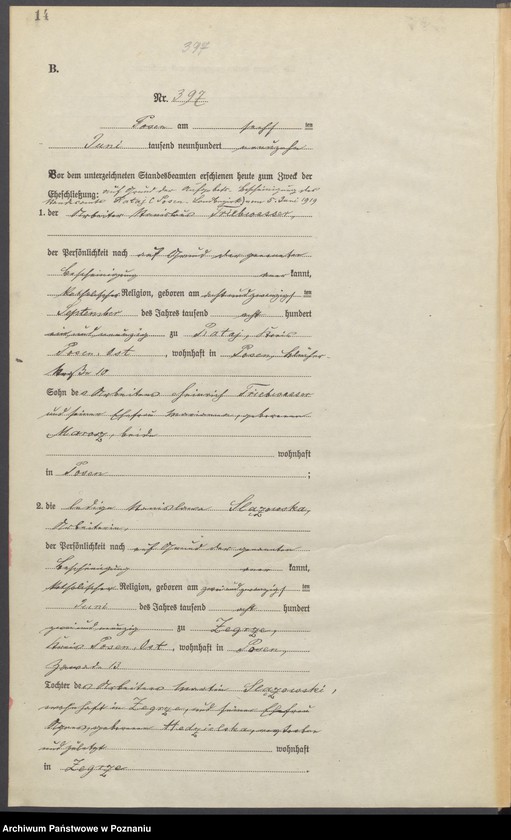 14
397
B.
Nr. 397
Posen am sechsten
Juni tausend neunhundert neunzehn
Vor dem unterzeichneten Standesbeamten erschienen heute zum Zweck der
Eheschließung: auf Grund der Aufgebots-Bescheinigung des
Standesamts Rataj (Posen Landbezirk) vom 5. Juni 1919
1. der Arbeiter Stanislaus Triebwasser,
der Persönlichkeit nach auf Grund der genannten
Bescheinigung anerkannt,
katholischer Religion, geboren am achtundzwanzigsten
September des Jahres tausend acht hundert
einundneunzig zu Rataj, Kreis
Posen-Ost, wohnhaft in Posen, Blücher-
straße 10
Sohn des Arbeiters Heinrich Triebwasser
und seiner Ehefrau Marianna, geborenen
beide
wohnhaft
in Posen ;
2. die ledige Stanislawa Slazewska,
Arbeiterin,
der Persönlichkeit nach auf Grund der genannten
Bescheinigung anerkannt,
katholischer Religion, geboren am zweiundzwanzigsten
Juni des Jahres tausend acht hundert
zweiundneunzig zu Zegrze,
Kreis Posen-Ost, wohnhaft in Posen,
Zawade 13
Tochter des Arbeiters Martin Slazewski,
wohnhaft in Zegrze, und seiner Ehefrau
Agnes, geborenen verstorben
und zuletzt wohnhaft
in Zegrze.
Archiwum Państwowe w Poznaniu